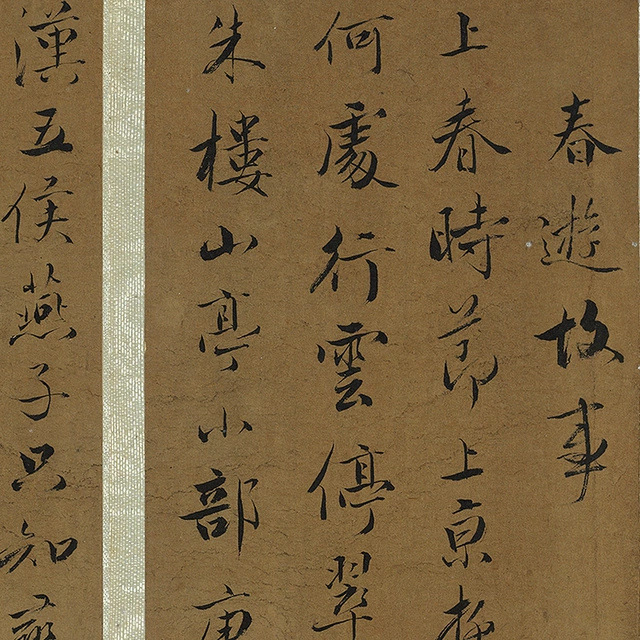 春遊故事
上春時節上京
何處行雲停翠
朱樓山亭小部
漢五侯燕子只知